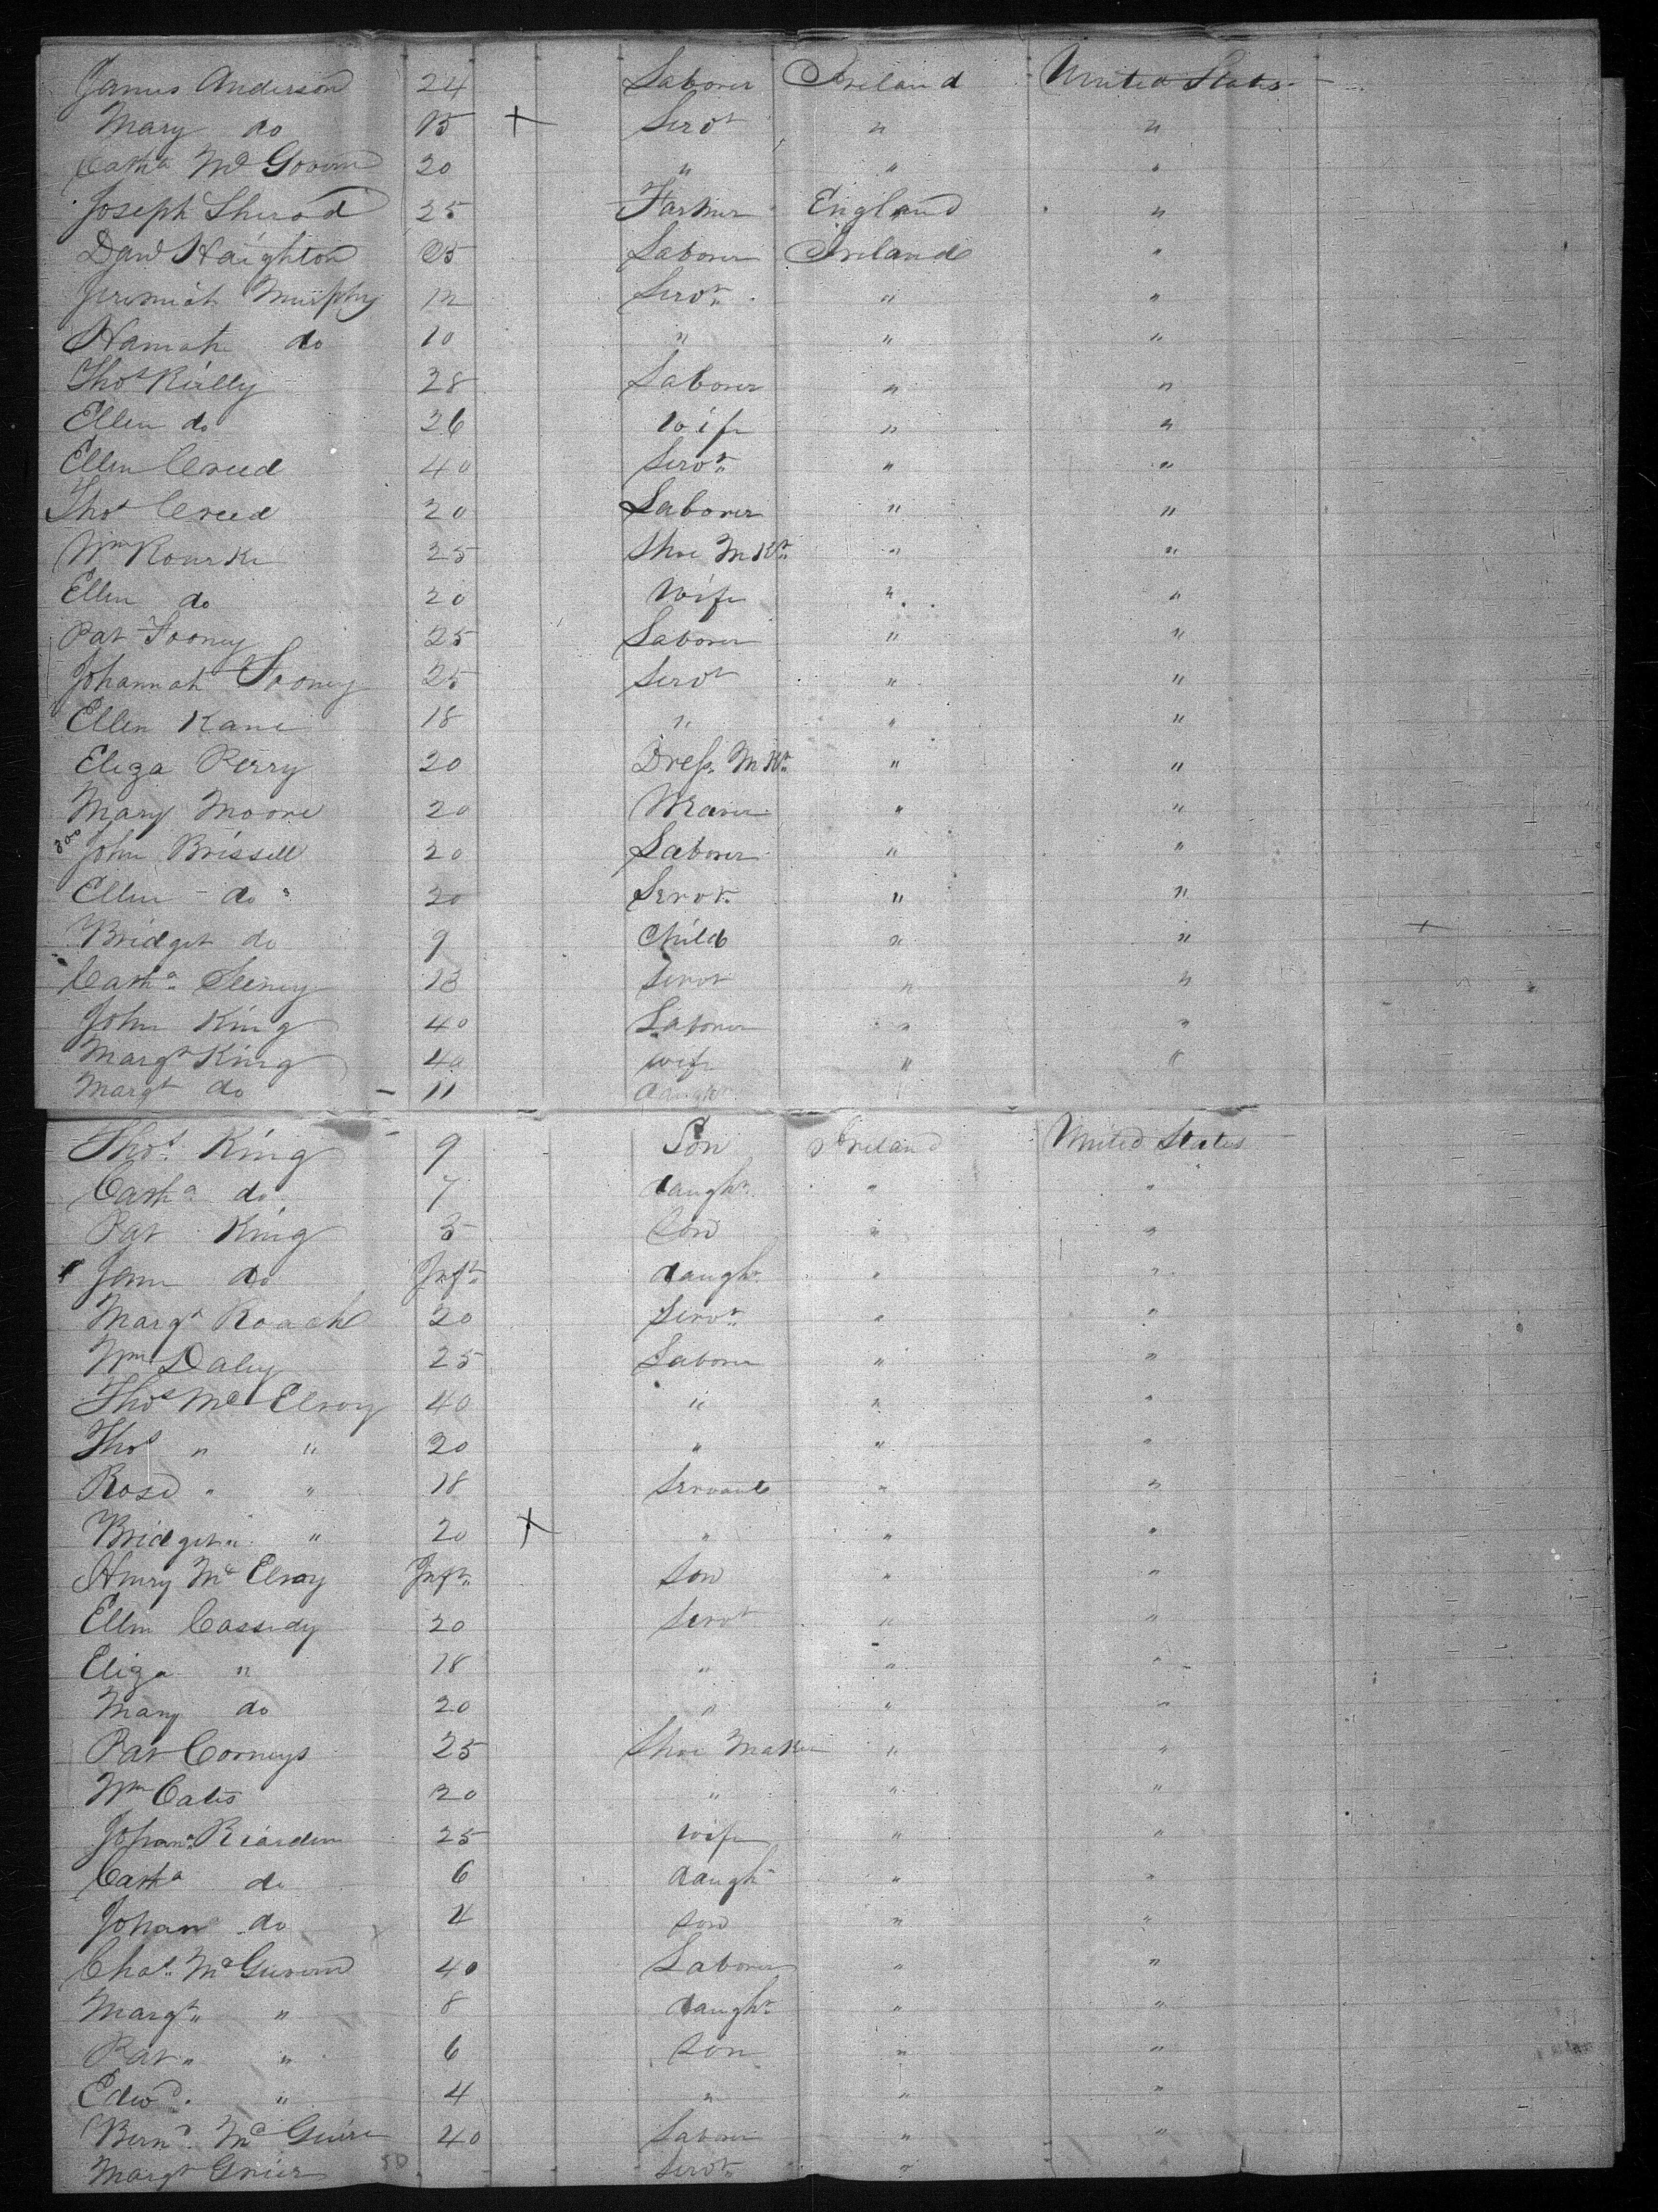 James Anderson 24 Laborer Ireland United States
Mary do 15 + Servt " "
Catha McGovern 20 " " "
Joseph Sherod 25 Farmer England "
Davd Haighton 25 Laborer Ireland "
Jeremiah Murphy 12 Servt " "
Hannah do 10 " " "
Thos Rielly 28 Laborer " "
Ellen do 26 Wife " "
Ellen Creed 40 Servt " "
Thos Creed 20 Laborer " "
Wm Rourke 25 Shoe Mkr " "
Ellen do 20 Wife " "
Pat Tooney 25 Laborer " "
Johannah Tooney 25 Servt " "
Ellen Kane 18 " " "
Eliza Perry 20 Dress Mkr " "
Mary Moore 20 Weaver " "
300 John Brissell 20 Laborer " "
Ellen do 20 Servt " "
Bridget do 9 Child " " +
Catha 13 Servt " "
John King 40 Laborer " "
Margt King 40 wife " "
Margt do - 11 daughr
Thos King 9 Son Ireland United States
Catha do 7 daughr " "
Pat King 3 Son " "
Jane do Inft daughr " "
Margt Roach 20 Servt " "
Wm Daley 25 Laborer " "
Thos McElroy 40 " " "
Thos " " 20 " " "
Rose " " 18 Servant " "
Bridget " " 20 + " " "
Henry McElroy Inft Son " "
Ellen Cassidy 20 Servt " "
Eliza " 18 " " "
Mary do 20 " " "
Pat Corneys 25 Shoe Maker " "
Wm Cates 20 " " "
Johana Riarden 25 Wife " "
Catha do 6 daugh " "
Johan do 4 son " "
Chas McGuvern 40 Laborer " "
Margt " " 8 daughr " "
Pat " " 6 Son " "
Edwd " 4 " " "
Bernd McGuire 40 Laborer " "
Margt Grier 50 Servt " "